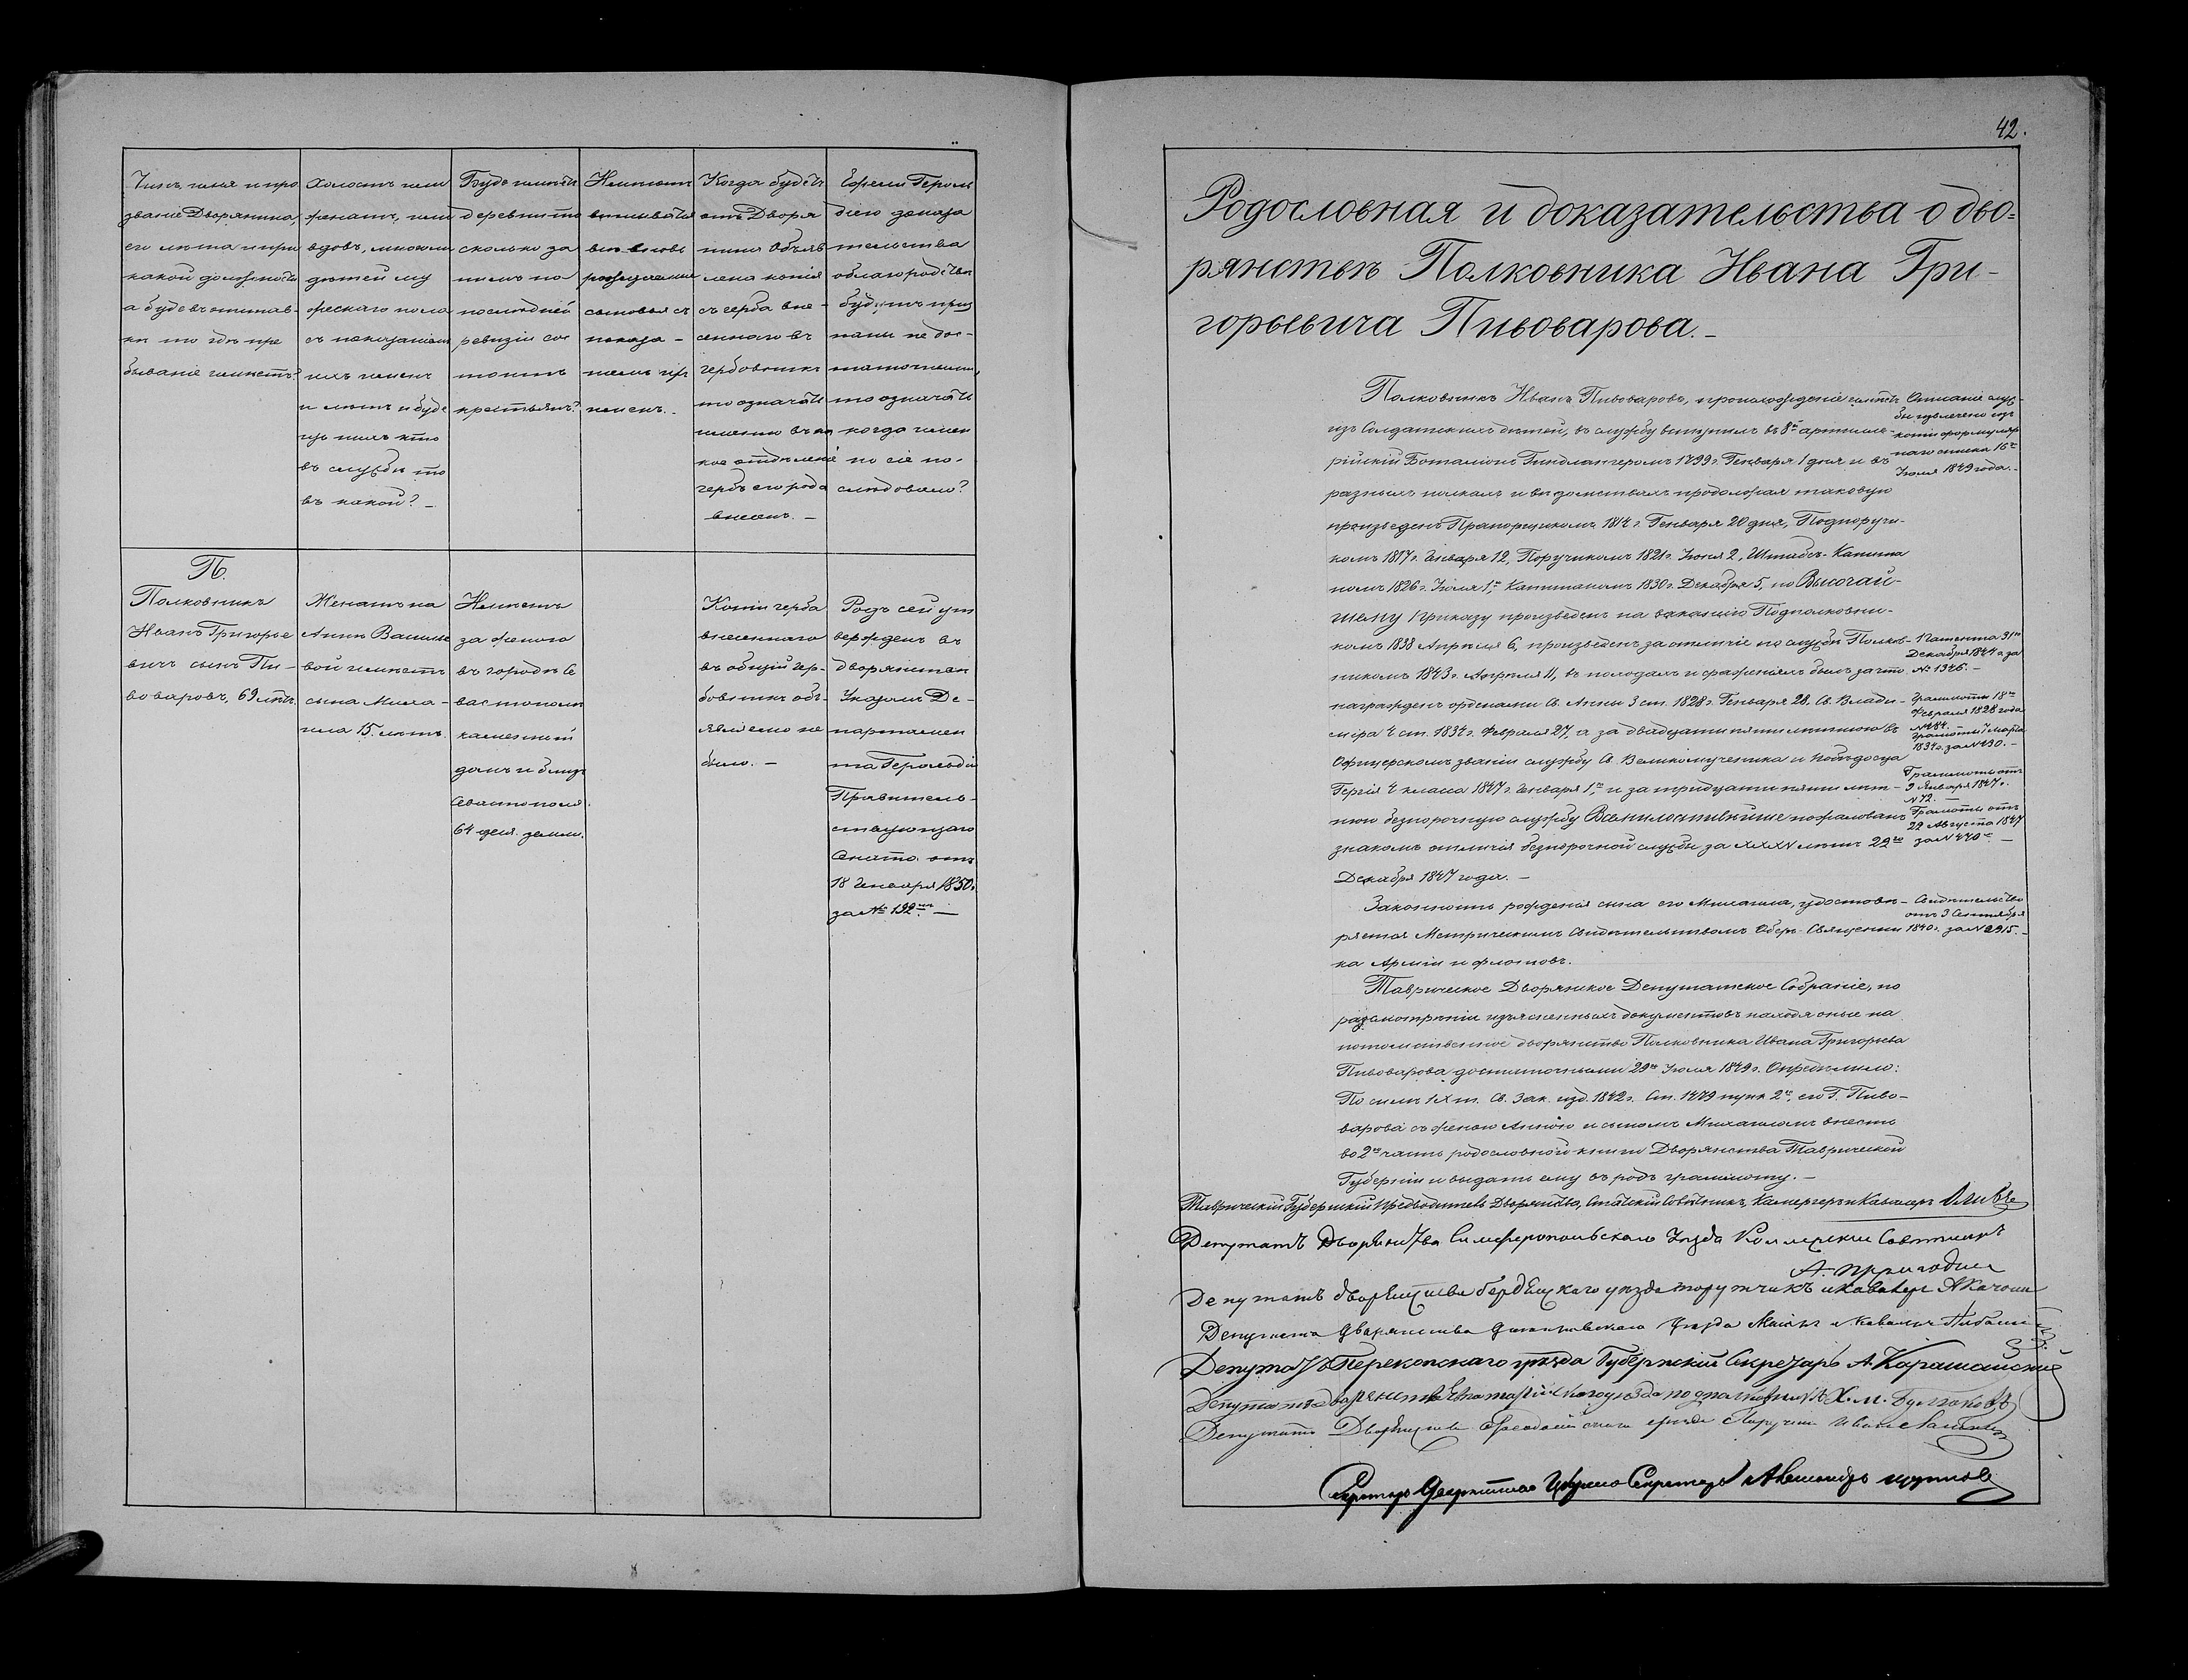 Чинъ, имя и про
званіе Дворянина,
его лѣта и при
какой должности
а буде въ отстав-
кѣ то гдѣ пре
бываніе имѣетъ?
Холостъ или
женатъ, или
вдовъ, много ли
дѣтей му
жескаго пола
съ показаніемъ
ихъ именъ
и лѣтъ и буде
изъ нихъ кто
въ службѣ то
въ какой? –
Буде имѣетъ
деревни то
сколько за
нимъ по
последней
ревизіи сос
тоитъ
крестьянъ?
Имѣютъ
вписываться
вновь
рождаемые
сыновья съ
показа-
ніемъ ихъ
именъ.
Когда будетъ
отъ Дворя
нина объяв
лена копія
съ герба вне-
сеннаго въ
гербовникъ
то означать
именно въ ка
кое отдѣленіе
гербъ его рода
внесенъ. –
Ежели Героль
діею доказа
тельства
облагородства
будутъ приз
наны не дос-
таточными,
то означать
когда имен
но сіе по-
слѣдовало?
П.
Полковникъ
Иванъ Григорье
вичъ сынъ Пи-
воваровъ, 69 лѣтъ.
Женатъ на
Аннѣ Василье
вой имѣетъ
сына Миха-
ила 15 лѣтъ.
Имѣетъ
за женою
въ городѣ Се
вастополѣ
каменный
домъ и близь
Севастополя
64 деся. земли.
Копіи герба
внесеннаго
въ общій гер-
бовникъ объ-
явлено не
было. –
Родъ сей ут
вержденъ въ
дворянствѣ
Указомъ Де-
партамен
та Герольдіи
Правитель-
ствующаго
Сената отъ
18 Генваря 1850 г.
за № 192мъ –
42.
Родословная и доказательства о дво=
рянствѣ Полковника Ивана Гри-
горьевича Пивоварова. –
Полковникъ Иванъ Пивоваровъ, происхожденіе имѣетъ
изъ Солдатскихъ дѣтей, въ службу вступилъ въ 8й артилле-
рійскій Баталіонъ Гандлангеромъ 1799 г. Генваря 1 дня и въ
разныхъ полкахъ и вѣдомствахъ продолжая таковую
произведенъ Прапорщикомъ 1814 г. Генваря 20 дня, Подпоручи-
комъ 1817 г. Генваря 12, Поручикомъ 1821 г. Іюня 2, Штабсъ-Капита
номъ 1826 г. Іюля 1, Капитаномъ 1830 г. Декабря 5, по Высочай-
шему Приказу произведенъ на ваканцію Подполковни-
комъ 1838 Апрѣля 6, произведенъ за отличіе по службѣ Полков-
никомъ 1843 г. Апреля 11, въ походахъ и сраженіяхъ былъ за что
награжденъ орденами Св. Анны 3 ст. 1828 г. Генваря 28, Св. Влади-
міра 4 ст. 1834 г. Февраля 27, а за двадцати пяти лѣтнюю въ
Офицерскомъ званіи службу Св. Великомученика и Побѣдосца
Георгія 4 класа 1847 г. Генваря 1, и за тридцати пяти лѣт-
нюю безпорочную службу Всемилостивѣйше пожалованъ
знакомъ отличія безпорочной службы за XXXV лѣтъ 22го
Декабря 1847 года. –
Описаніе служ-
бы извлечено изъ
копіи формуляр
наго списка 16го
Іюля 1849 года. –
Патента 31го
Декабря 1844 г. за
№ 1346. –
Грамоты 18го
Февраля 1828 года
№ 484. –
Грамоты 7 Марта
1834 г. за № 430. –
Грамоты отъ
9 Января 1847 г.
№ 72. –
Грамоты отъ
22 Августа 1847
за № 440. –
Законность рожденія сына его Михаила, удостовѣ-
ряется Метрическимъ Свидѣтельствомъ Оберъ-Священни
ка Арміи и флотовъ.
Свидѣтельство
отъ 3 Сентября
1840 г. за № 2915. –
Таврическое Дворянское Депутатское Собраніе, по
разсмотрѣніи изъясненныхъ документовъ находя оные на
потомственное дворянство Полковника Ивана Григорьева
Пивоварова достаточными 29го Іюля 1849 г. Опредѣлило:
По силѣ IX т. Св. Зак. изд. 1842 г. Ст. 1479 пунк 2го, его Г. Пиво-
варова съ женою Анною и сыномъ Михаиломъ внесть
во 2ю часть родословной книги Дворянства Таврической
Губерніи и выдать ему въ родъ грамоту. –
Таврическій Губернскій Предводитель Дворянства, Статскій Совѣтникъ, Камергеръ и Кавалеръ Оливъ
Депутатъ Дворянства Симферопольскаго Уѣзда Коллежскій Совѣтникъ
Депутатъ дворянства Бердянскаго уѣзда поручикъ и кавалеръ
Депутатъ дворянства Днѣпровскаго Уѣзда Маіоръ и Кавалеръ
Депутатъ Перекопскаго уѣзда Губернскій Секретарь А. Карашайскій
Депутатъ дворянства Евпаторійскаго уѣзда подполковникъ Х. М. Булгаковъ
Депутатъ Дворянства Феодосійскаго уѣзда Поручикъ Иванъ
Секретарь Дворянства Губернскій Секретарь Александръ